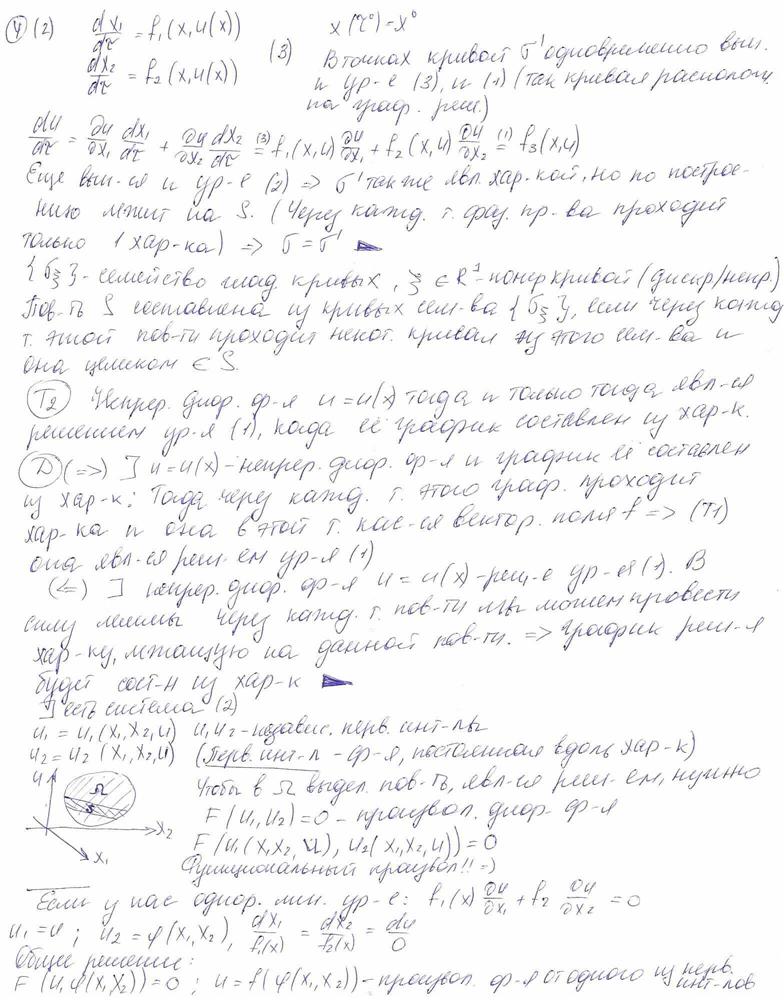 ④ (2) dx₁/dτ = f₁(x, u(x))
dx₂/dτ = f₂(x, u(x)) (3)
x(τ⁰) = x⁰
В точках кривой σ' одновременно вып.
и ур-е (3), и (1) (так кривая располож.
на граф. реш.)
du/dτ = ∂u/∂x₁ dx₁/dτ + ∂u/∂x₂ dx₂/dτ (3)= f₁(x,u) ∂u/∂x₁ + f₂(x,u) ∂u/∂x₂ (1)= f₃(x,u)
Еще вып-ся и ур-е (2) => σ' также явл. хар-кой, но по построе-
нию лежит на S. (Через кажд. т. фаз. пр-ва проходит
только 1 хар-ка) => σ = σ'
{σ_ξ} - семейство глад. кривых, ξ ∈ R¹ - номер кривой (дискр/непр.)
Пов-ть S составлена из кривых сем-ва {σ_ξ}, если через кажд
т. этой пов-ти проходит некот. кривая из этого сем-ва и
она целиком ∈ S.
(T2) Непрер. диф. ф-я u = u(x) тогда и только тогда явл-ся
решением ур-я (1), когда её график составлен из хар-к.
(Д) (=>) ] u = u(x) - непрер. диф. ф-я и график её составлен
из хар-к: Тогда через кажд. т. этого граф. проходит
хар-ка и она в этой т. кас-ся вектор. поля f => (T1)
она явл-ся реш-ем ур-я (1)
(<=) ] непрер. диф. ф-я u = u(x) - реш-е ур-ея (1). В
силу леммы через кажд. т. пов-ти мы можем провести
хар-ку, лежащую на данной пов-ти. => график реш-я
будет сост-н из хар-к
] есть система (2)
u₁ = u₁(x₁,x₂,u) u₁,u₂ - независ. перв. инт-лы
u₂ = u₂(x₁,x₂,u) (Перв. инт-л - ф-я, постоянная вдоль хар-к)
u Ω S x₂ x₁
Чтобы в Ω выдел. пов-ть, явл-ся реш-ем, нужно
F(u₁,u₂) = 0 - произвол. диф. ф-я
F(u₁(x₁x₂, u), u₂(x₁,x₂,u)) = 0
Функциональный произвол!! =)
Если у нас однор. лин. ур-е: f₁(x) ∂u/∂x₁ + f₂ ∂u/∂x₂ = 0
u₁ = u; u₂ = φ(x₁,x₂), dx₁/f₁(x) = dx₂/f₂(x) = du/0
Общее решение:
F(u, φ(x₁,x₂)) = 0; u = f(φ(x₁,x₂)) - произвол. ф-я от одного из перв. инт-лов